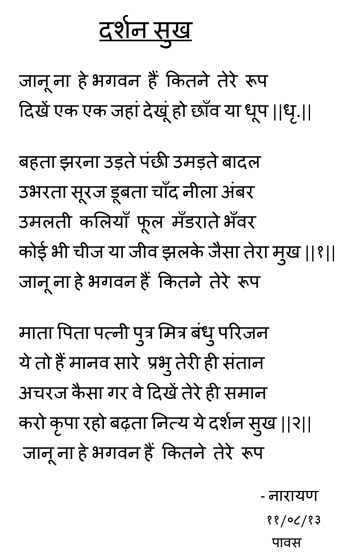 दर्शन सुख
जानू ना हे भगवन हैं कितने तेरे रूप
दिखें एक एक जहां देखूं हो छाँव या धूप ||धृ.||
बहता झरना उड़ते पंछी उमड़ते बादल
उभरता सूरज डूबता चाँद नीला अंबर
उमलती कलियाँ फूल मँडराते भँवर
कोई भी चीज या जीव झलके जैसा तेरा मुख ||१||
जानू ना हे भगवन हैं कितने तेरे रूप
माता पिता पत्नी पुत्र मित्र बंधु परिजन
ये तो हैं मानव सारे प्रभु तेरी ही संतान
अचरज कैसा गर वे दिखें तेरे ही समान
करो कृपा रहो बढ़ता नित्य ये दर्शन सुख ||२||
जानू ना हे भगवन हैं कितने तेरे रूप
- नारायण
११/०८/१३
पावस